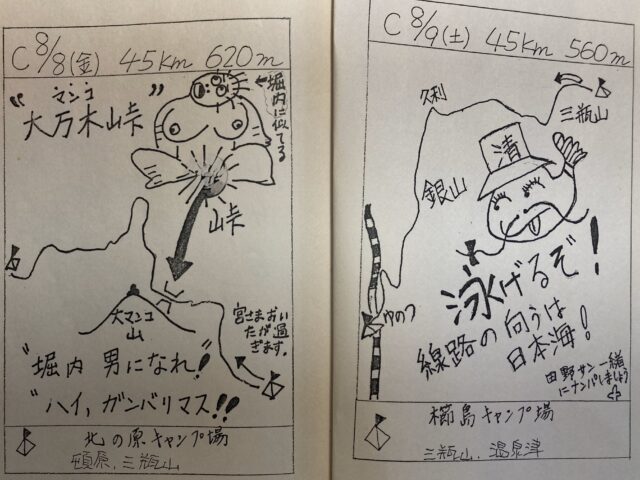 C 8/8(金) 45Km 620m
マンコ
"大万木峠"
←堀内に似てる
峠
大マンコ
山
宮さまおい
たが過
ぎます。
"堀内 男になれ!"
"ハイ,ガンバリマス!!"
北の原キャンプ場
頓原,三瓶山
C 8/9(土) 45Km 560m
久利
三瓶山
清
銀山
泳げるぞ!
ゆのつ
線路の向うは
日本海!
田野サン一緒
にナンパしましょう
櫛島キャンプ場
三瓶山.温泉津